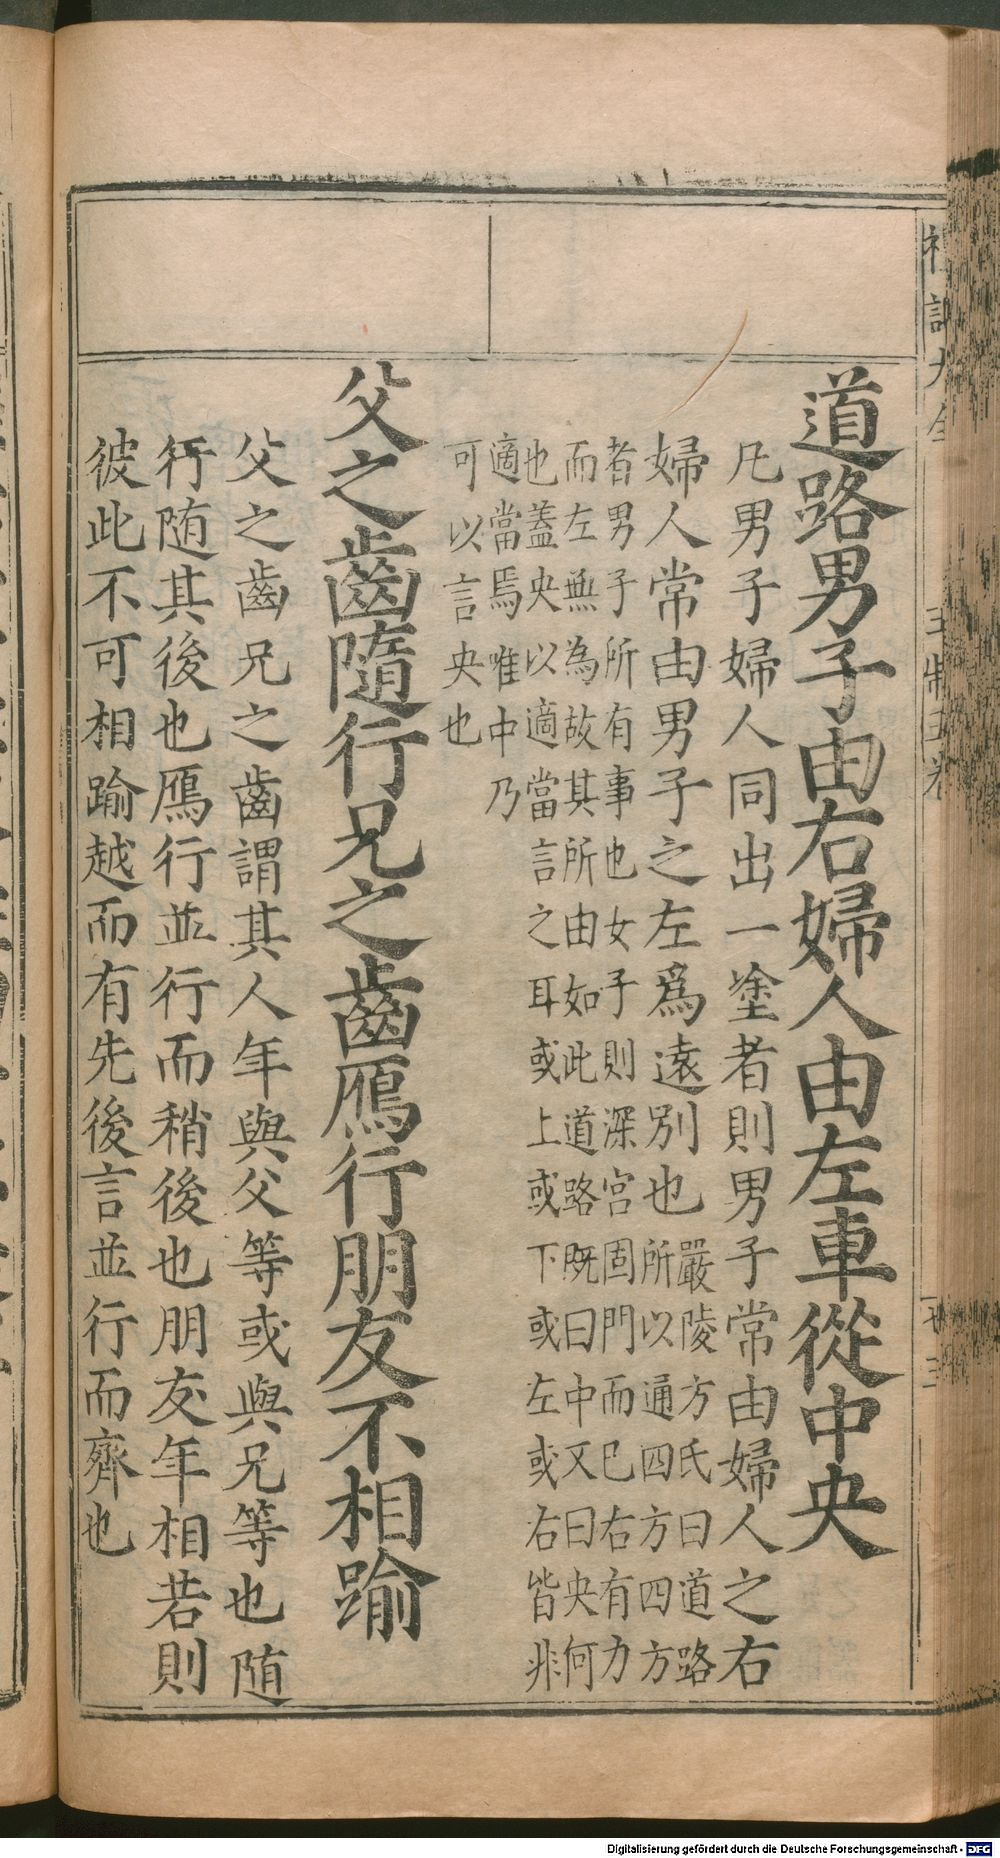 道路男子由右婦人由左車從中央
凡男子婦人同出一塗者則男子常由婦人之右
婦人常由男子之左爲遠別也
嚴陵方氏曰道路
所以通四方四方
者男子所有事也女子則深宮固門而已右有力
而左無為故其所由如此道路既曰中又曰央何
也蓋央以適當言之耳或上或下或左或右皆非
適當焉唯中乃
可以言央也
父之齒隨行兄之齒鴈行朋友不相踰
父之齒兄之齒謂其人年與父等或與兄等也随
行随其後也鴈行並行而稍後也朋友年相若則
彼此不可相踰越而有先後言並行而齊也
Digitalisierung gefördert durch die Deutsche Forschungsgemeinschaft - DFG